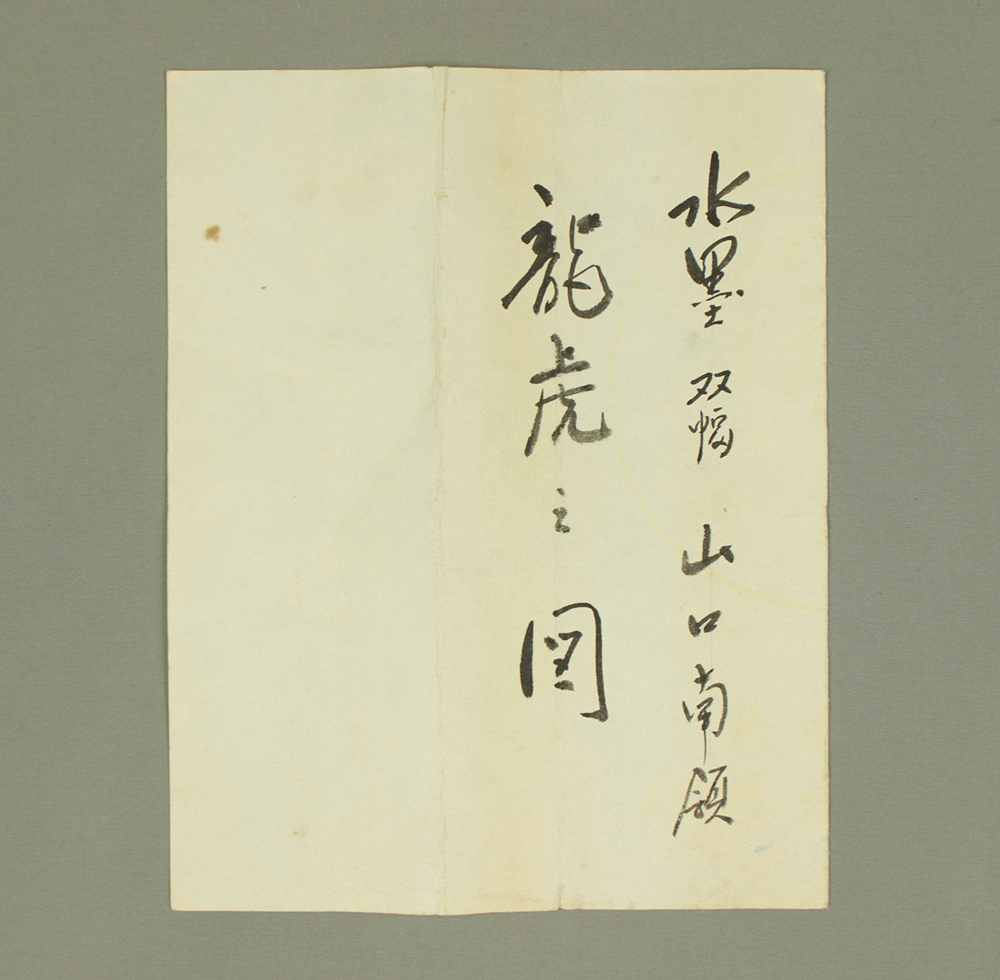 水墨 双幅 山口南願
龍虎之図